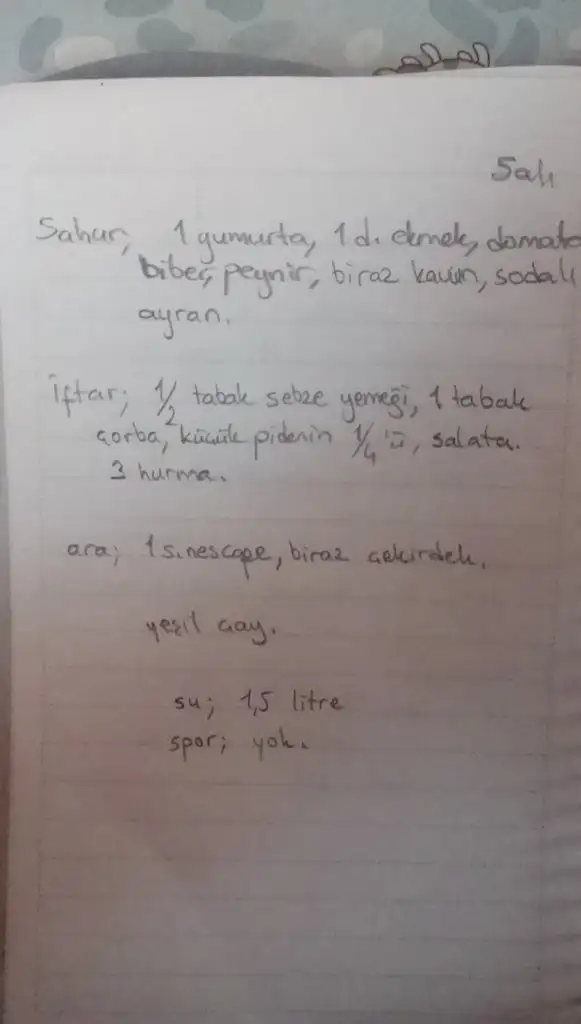 Salı
Sahur; 1 yumurta, 1 d. ekmek, domate
biber, peynir, biraz kavun, sodalı
ayran.
İftar; 1/2 tabak sebze yemeği, 1 tabak
çorba, küçük pidenin 1/4'ü, salata.
3 hurma.
ara; 1 sinescope, biraz çekirdek.
yeşil çay.
su; 1,5 litre
spor; yok.